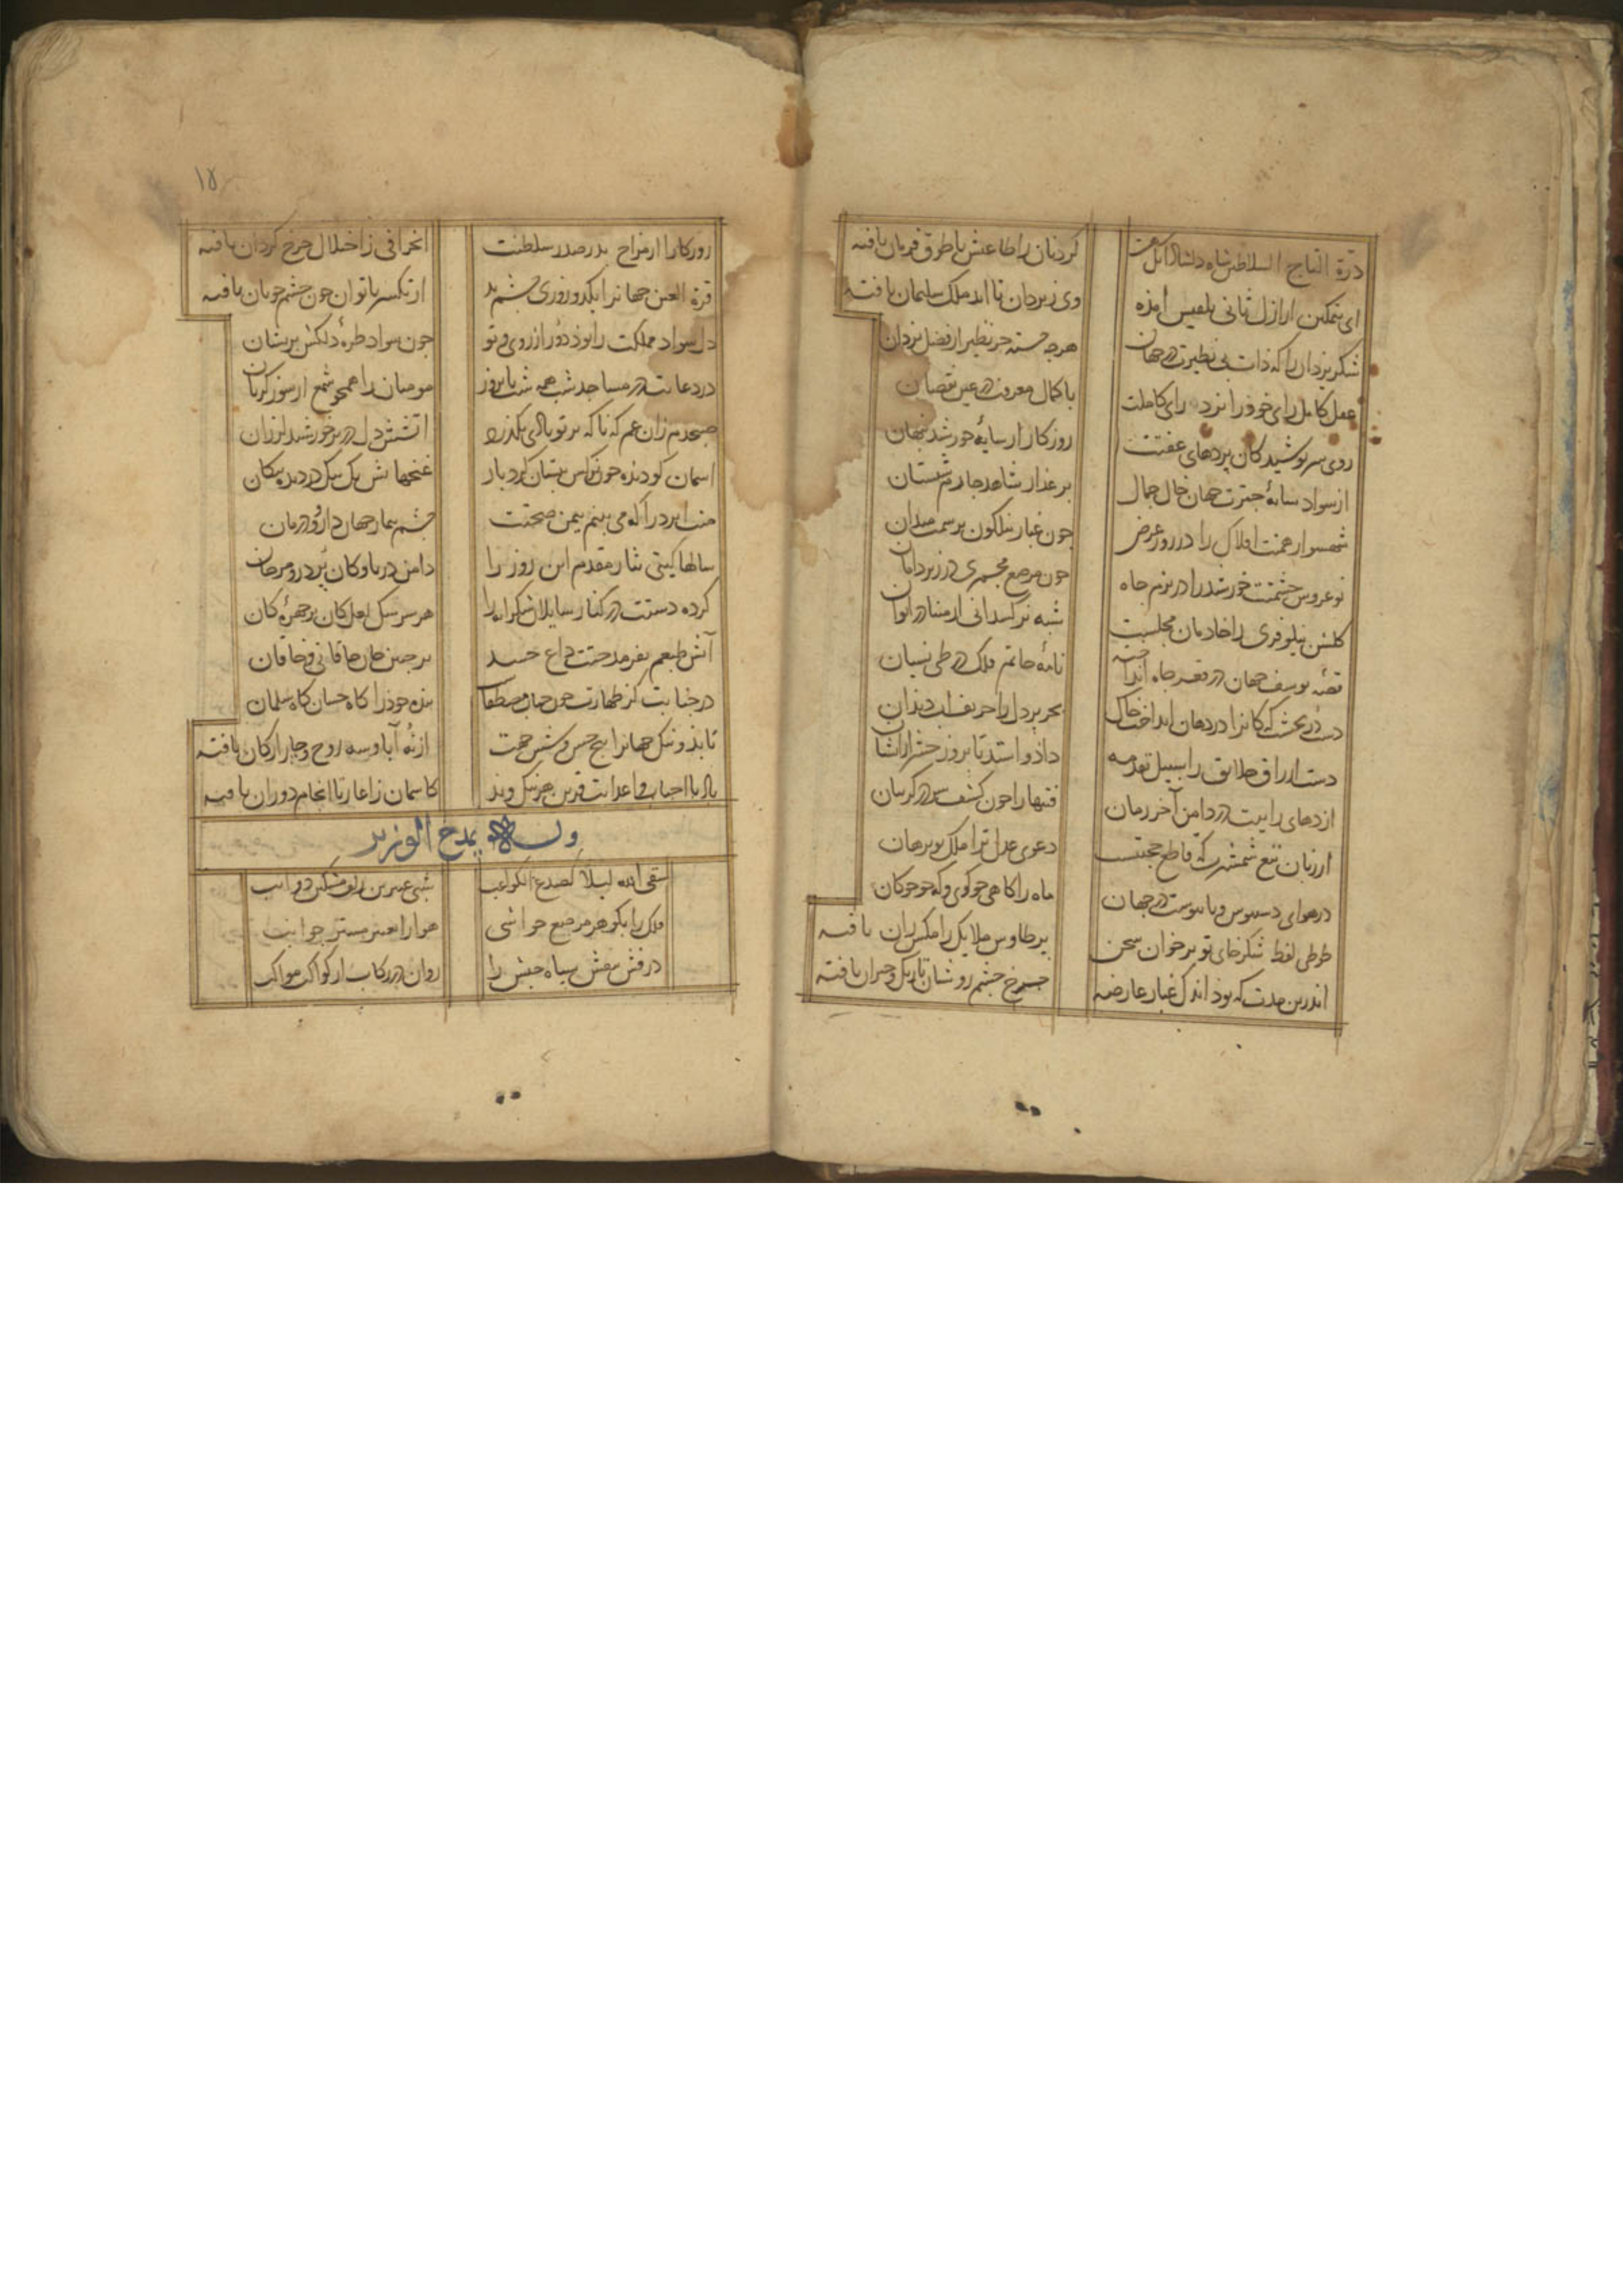 درة التاج السلاطین شاه دلشاد آنک
کردنان را طاعتش با طوق فرمان یافته
ای بتمکین از ازل ثانی بلقیس امذه
وی ز یزدان تا ابد ملک سلیمان یافته
شکر یزدان را که ذات بی نظیرت در جهان
هرچه جسته جز نظیر از فضل یزدان
عقل کامل رای خود را نزد رای کاملت
با کمال معرفت در عین نقصان
روی سرپوشیدکان پردهای عفتت
روزکار از سایهٔ خورشید پنهان
از سواد سایهٔ چترت جهان خال جمال
بر عذار شاهد چارم شبستان
شهسوار همتت افلاک را در روز عرض
چون غبار نیلکون بر سمت میدان
نوعروس حشمتت خورشید را در بزم جاه
چون مرصع مجمری در زیر دامان
کلشن نیلوفری را خادمان مجلست
شبه نرکسدانی از مینا در ایوان
قصهٔ یوسف جهان در قعر چاه انداخته
نامهٔ حاتم فلک در طی نسیان
دست در بخشت که کانرا در دهان انداخت خاک
بحر پر دل را حریف آب دندان
دست ارزاق خلایق را بسبیل تقدمه
داذ و استد تا بروز حشر ازیشان
اژدهای رایتت در دامن آخر زمان
فتنها را چون کشف سر در کریبان
از زبان تیغ شمشیرت که قاطع حجتست
دعوی عدل ترا ملک تو برهان
در هوای دستبوس و پایبوست در جهان
ماه را کاهی چو کوی و که چو چوکان
طوطی لفظ شکرخای تو بر خوان سخن
پر طاوس ملایک را مکس ران یافته
اندرین مدت که بوذ اندک غبار عارضه
چرخ چشم روشنان تاریک و حیران یافته
۱۵
روزکارا از مزاج بدر صدر سلطنت
انحرافی ز اختلال چرخ کردان یافته
قرة العین جهانرا یکدو روزی چشم بد
از تکسر ناتوان چون چشم خوبان یافته
دل سواد مملکت را بوذ دور از روی تو
چون سواد طرهٔ دلکش پریشان
در دعایت در مساجد شب همه شب تا بروز
مومنان را همچو شمع از سوز کریان
صبحدم زان غم که ناکه بر تو بادی بکذرد
آتشش دل در بر خورشید لرزان
آسمان کو دیذه چون نرکس بستان کرد باز
غنچهاش یک بیک در دیده پیکان
منت ایزد را که می بینم بیمن صحتت
چشم بیمار جهان دارو و درمان
سالها کیتی نثار مقدم این روز را
دامن دریا و کان پر در و مرجان
کرده دستت در کنار سایلان شکرانه را
هر سرشک لعل کان بر چهرهٔ کان
آتش طبعم بفر مدحتت داغ حسد
بر جبین جان خاقانی و خاقان
در جنابت کز طهارت چون جناب مصطفاست
بنده خود را کاه حسان کاه سلمان
تا بذ و نیک جهانرا پنج حس و شش جهت
از نه آبا و سه روح و چار ارکان یافته
باد با احباب و اعدایت قرین هر نیک و بد
کاسمان ز اغاز تا انجام دوران یافته
وله بمدح الوزیر
سقی الله لیلا کصدغ الکواعب
شبی عنبرین زلف مشکین ذوایب
فلک را بکوهر مرصع حواشی
هوا را بعنبر مستر جوانب
درفش بنفش سپاه حبش را
روان در رکاب از کواکب مواکب